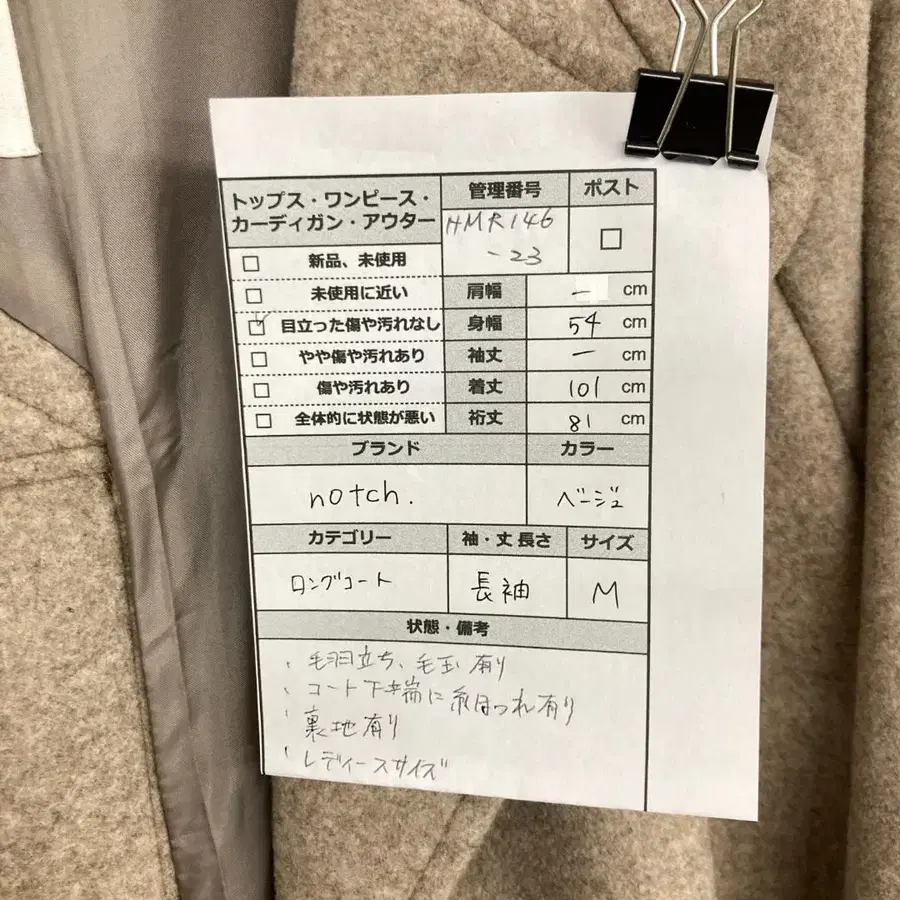 トップス・ワンピース・
カーディガン・アウター
管理番号
ポスト
HMR146
-23
□
□ 新品、未使用
□ 未使用に近い
肩幅 ー cm
☑ 目立った傷や汚れなし
身幅 54 cm
□ やや傷や汚れあり
袖丈 ー cm
□ 傷や汚れあり
着丈 101 cm
□ 全体的に状態が悪い
裄丈 81 cm
ブランド
カラー
notch.
ベージュ
カテゴリー
袖・丈 長さ
サイズ
ロングコート
長袖
M
状態・備考
、毛羽立ち、毛玉有り
、コート下端に糸ほつれ有り
、裏地有り
、レディースサイズ